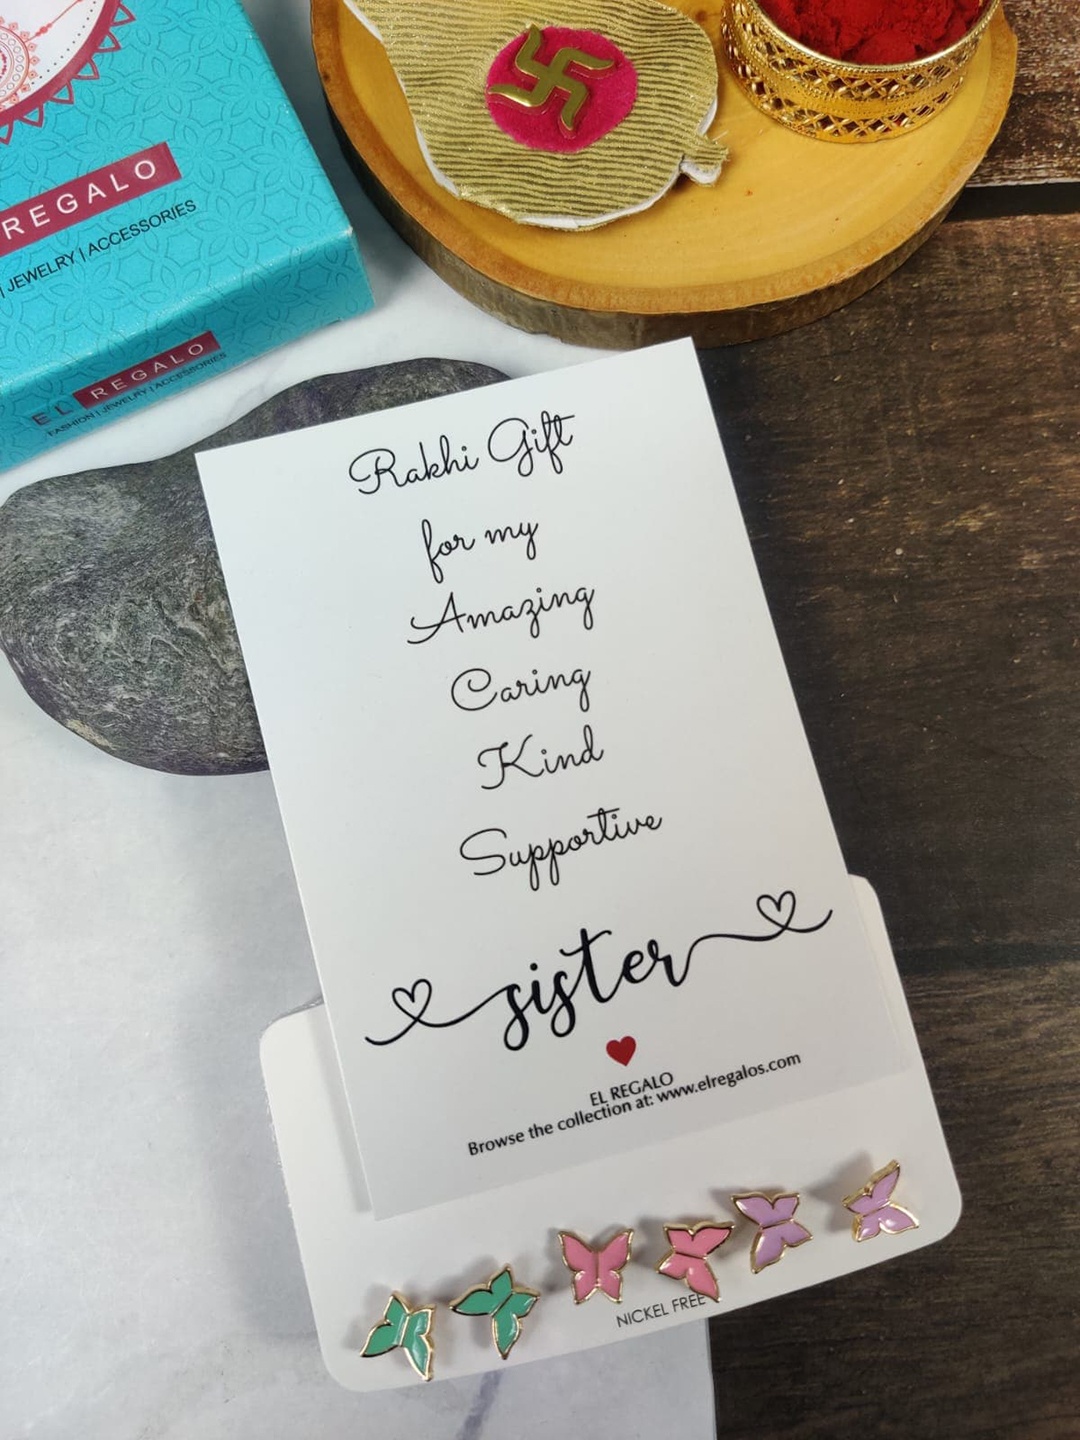 REGALO
| JEWELRY | ACCESSORIES
EL REGALO
FASHION | JEWELRY | ACCESSORIES
Rakhi Gift
for my
Amazing
Caring
Kind
Supportive
sister
EL REGALO
Browse the collection at: www.elregalos.com
NICKEL FREE